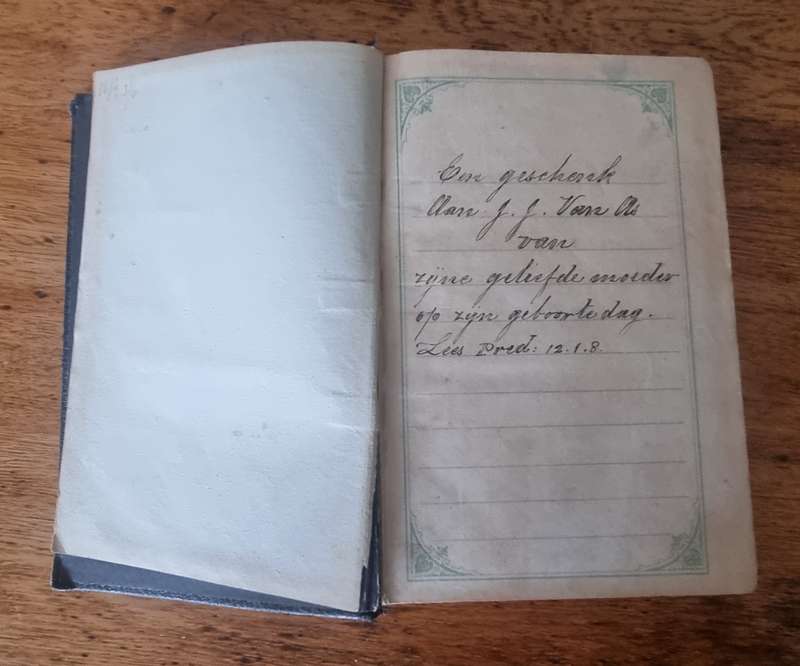 Een geschenk
Aan J. J. Van As
van
zijne geliefde moeder
op zijn geboorte dag.
Lees Pred: 12.1.8.